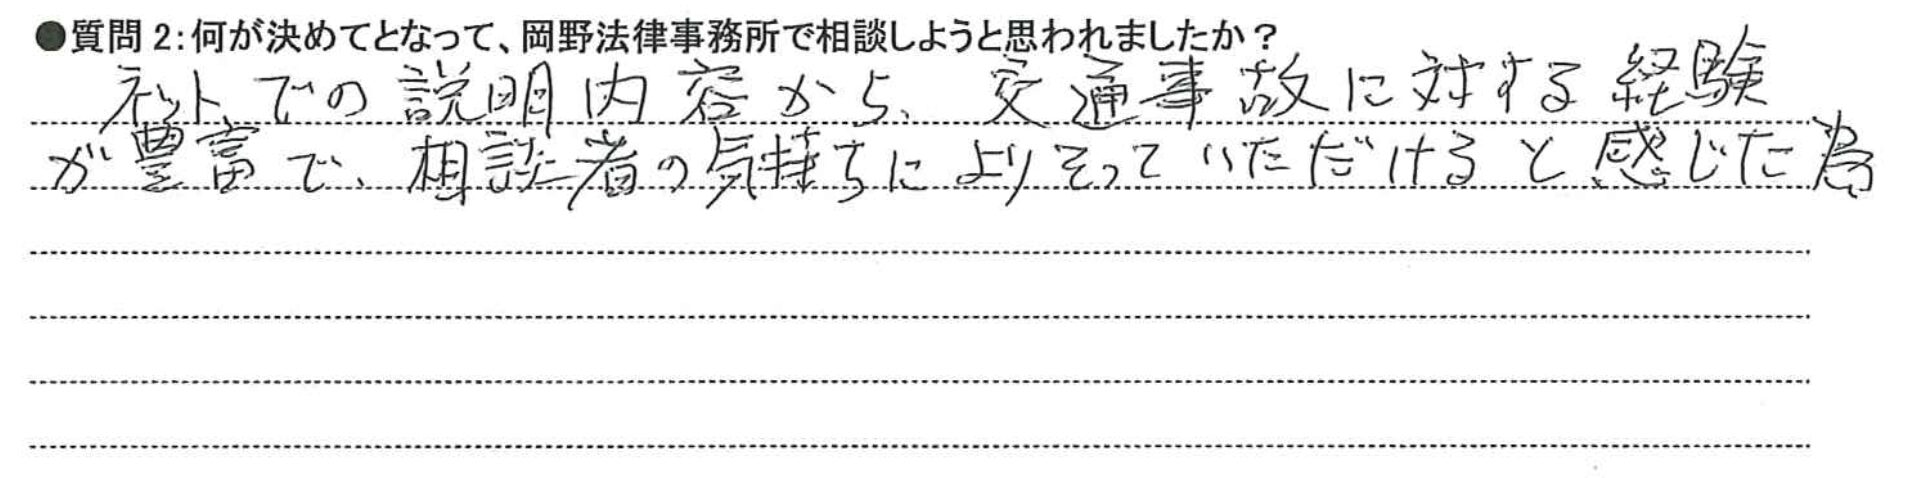 ●質問2:何が決めてとなって、岡野法律事務所で相談しようと思われましたか?
ネットでの説明内容から、交通事故に対する経験
が豊富で、相談者の気持ちによりそっていただけると感じた為